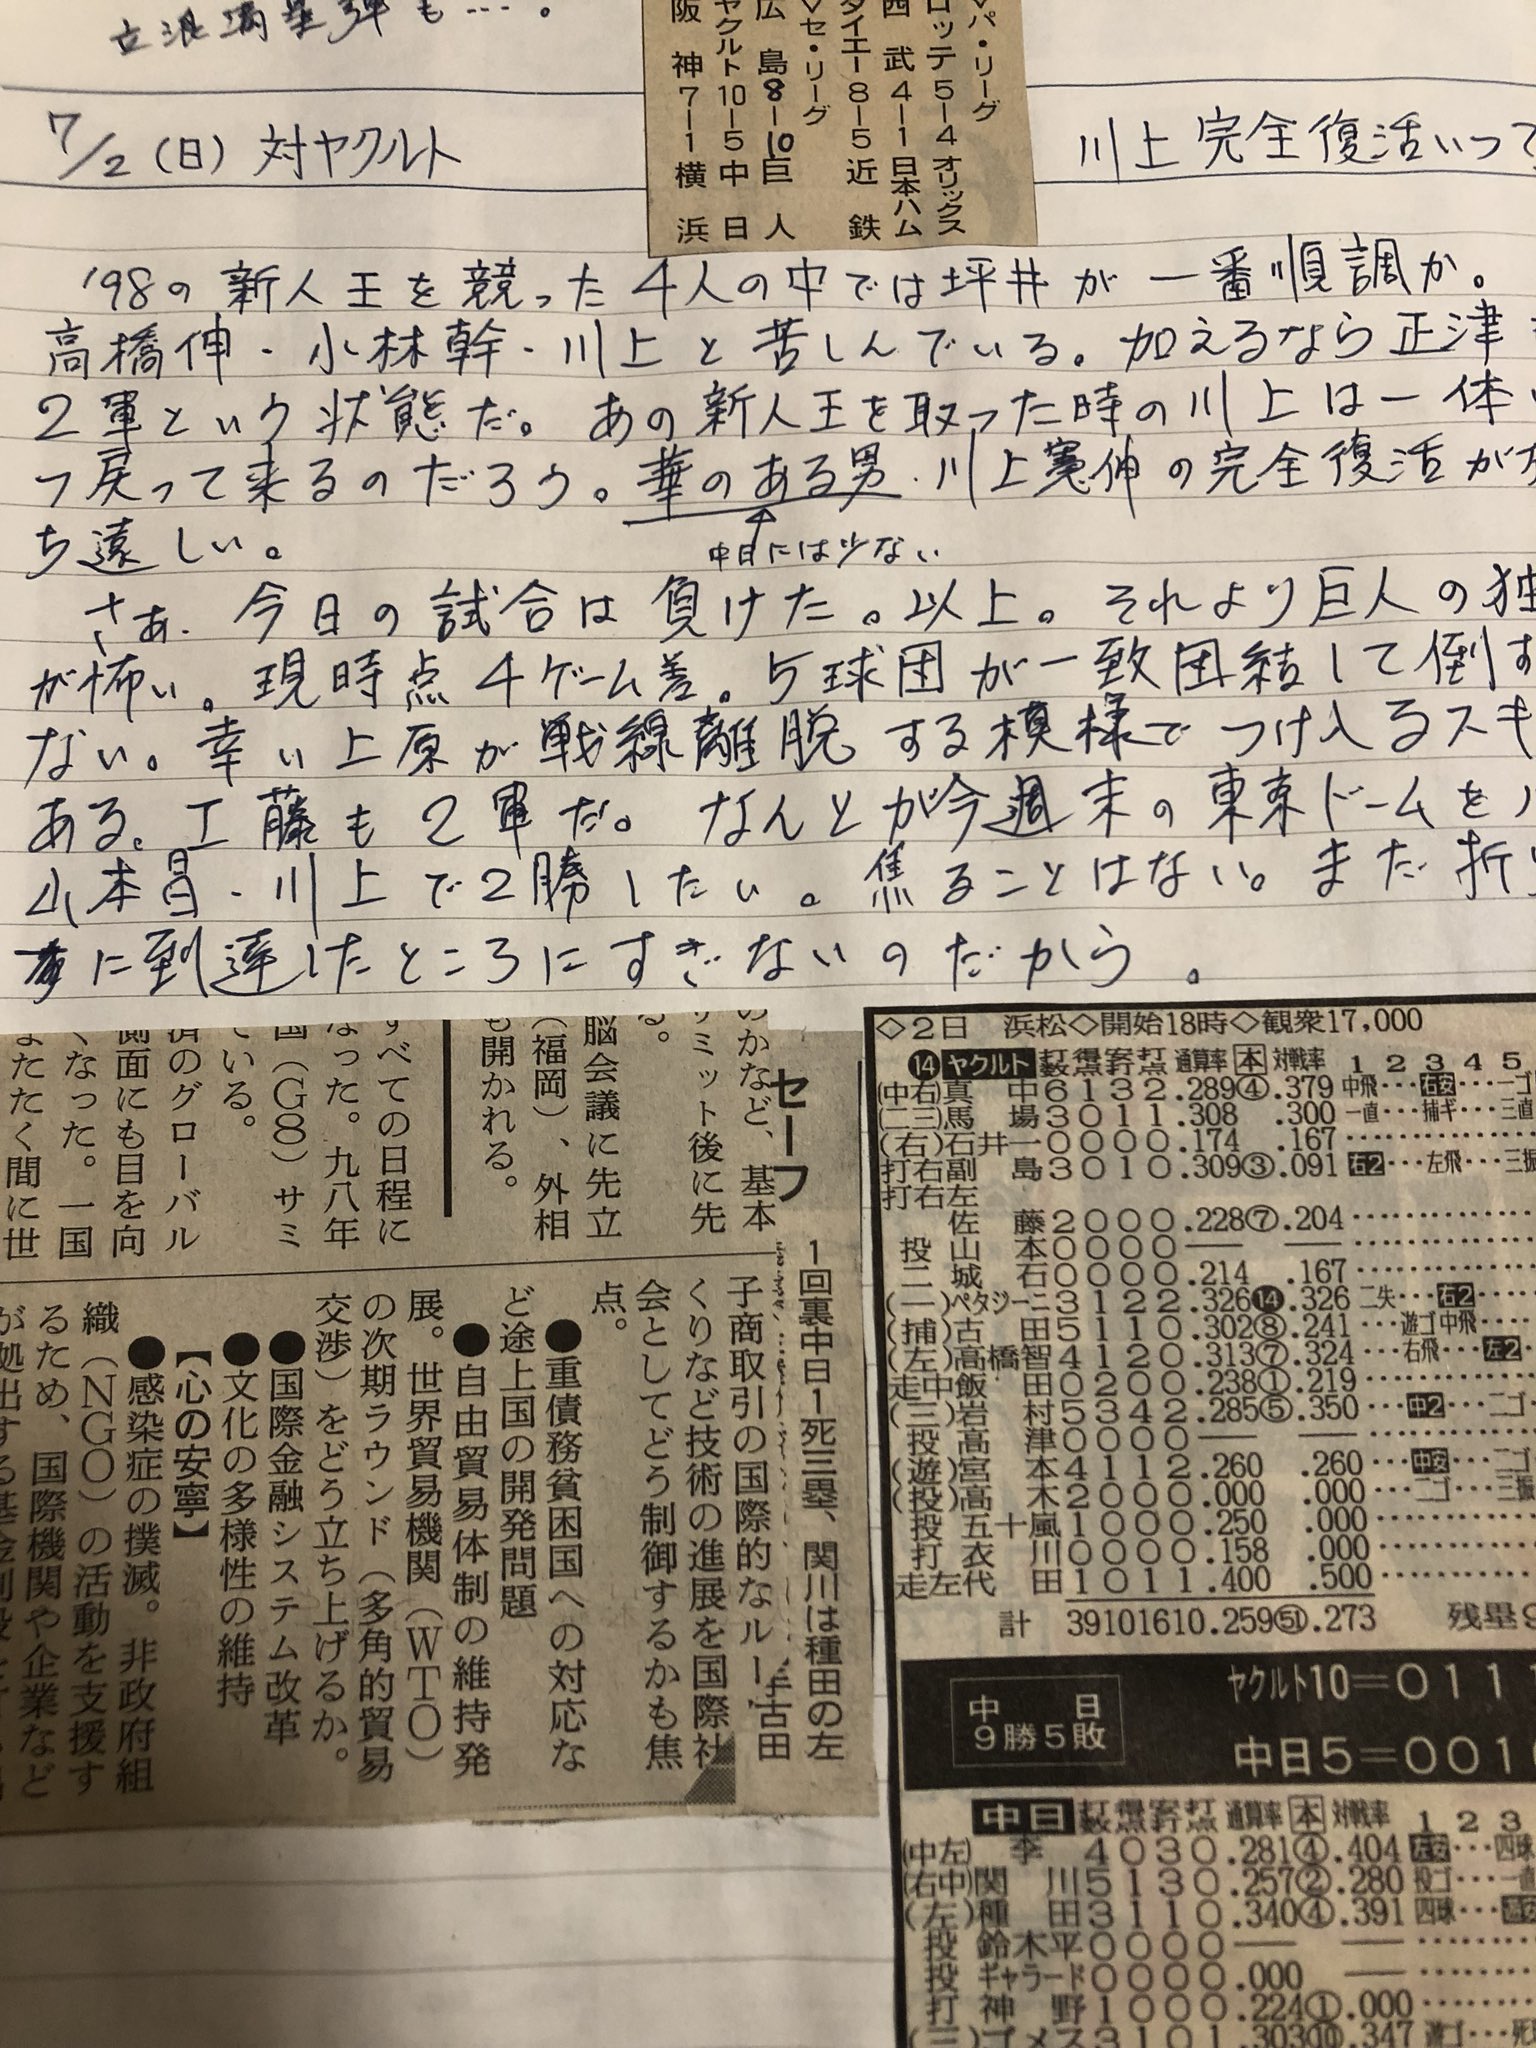 立浪満塁弾も…。
7/2(日)対ヤクルト
川上完全復活いつ
▽パ・リーグ
ロッテ5―4オリックス
西武4―1日本ハム
ダイエー8―5近鉄
▽セ・リーグ
広島8―10巨人
ヤクルト10―5中日
阪神7―1横浜
'98の新人王を競った4人の中では坪井が一番順調か。
高橋伸・小林幹・川上と苦しんでいる。加えるなら正津
2軍という状態だ。あの新人王を取った時の川上は一体い
つ戻って来るのだろう。華のある男・川上憲伸の完全復活が
ち遠しい。
中日には少ない
さぁ、今日の試合は負けた。以上。それより巨人の独
が怖い。現時点4ゲーム差。5球団が一致団結して倒す
ない。幸い上原が戦線離脱する模様でつけ入るスキ
ある。工藤も2軍だ。なんとか今週末の東京ドームを
山本昌・川上で2勝したい。焦ることはない。まだ折
に到達したところにすぎないのだから。
のかなど、基本
ミット後に先
る。
脳会議に先立
(福岡)、外相
も開かれる。
すべての日程に
なった。九八年
国(G8)サミ
ている。
済のグローバル
側面にも目を向
くなった。一国
またたく間に世
セーフ
1回裏中日1死三塁、関川は種田の左
子商取引の国際的なルー
くりなど技術の進展を国際社
会としてどう制御するかも焦
点。
●重債務貧困国への対応な
ど途上国の開発問題
●自由貿易体制の維持発
展。世界貿易機関(WTO)
の次期ラウンド(多角的貿易
交渉)をどう立ち上げるか。
●国際金融システム改革
●文化の多様性の維持
【心の安寧】
●感染症の撲滅。非政府組
織(NGO)の活動を支援す
るため、国際機関や企業など
古田
◇2日 浜松◇開始18時◇観衆17,000
⓮ヤクルト 打数得点安打打点通算率本対戦率 1 2 3 4 5
(中右)真中6132.289④.379 中飛…右安…一ゴ
(二三)馬場3011.308 .300 一直…捕ギ…三直
(右)石井一0000.174 .167
打右副島3010.309③.091 右2…左飛…三振
打右左
佐藤2000.228⑦.204
投山本0000――
二城石0000.214 .167
(一)ペタジーニ3122.326⓮.326 二失…右2
(捕)古田5110.302⑧.241 …遊ゴ中飛
(左)高橋智4120.313⑦.324 …右飛…左2
走中飯田0200.238①.219
(三)岩村5342.285⑤.350 …中2…二ゴ
投高津0000――
(遊)宮本4112.260 .260 …中安…二ゴ
(投)高木2000.000 .000 …二ゴ…三振
投五十嵐1000.250 .000
打衣川0000.158 .000
走左代田1011.400 .500
計 39101610.259㊿.273 残塁9
中日
9勝5敗
ヤクルト10=0111
中日5=001
中日 打数得点安打打点通算率本対戦率 1 2 3
(中左)李4030.281④.404 左安…四球
(右中)関川5130.257②.280 投ゴ…一直
(左)種田3110.340④.391 四球…遊安
投鈴木平0000――
投ギャラード0000.000 ―
打神野1000.224①.000
(三)ゴメス3101.303⑩.347 遊ゴ…死